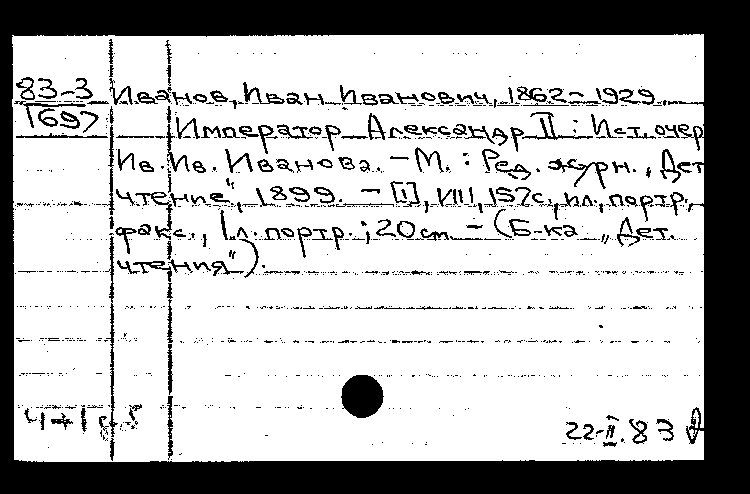 83-3 Иванов, Иван Иванович, 1862-1929.
1697 Император Александр II : Ист. очер
Ив. Ив. Иванова. - М. : Ред. журн. „Дет
чтение", 1899. - [1], VIII, 157с., ил., портр.,
факс., 1л. портр. ; 20см - (Б-ка „Дет.
чтения").
22-II.83